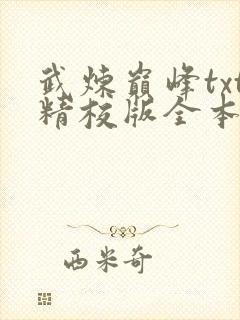 武炼巅峰txt
精校版全本
西米奇